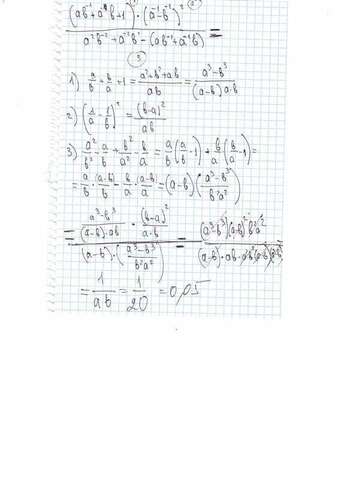 (ab⁻¹+a⁻¹b+1)·(a⁻¹-b⁻¹)²
a²b⁻²+a⁻²b²-(ab⁻¹+a⁻¹b) =
3
1) a/b + b/a + 1 = (a²+b²+ab)/ab = (a³-b³)/((a-b)a·b)
2) (1/a - 1/b)² = (b-a)²/ab
3) a²/b² - a/b + b²/a² - b/a = a/b (a/b - 1) + b/a (b/a - 1) =
= a/b · (a-b)/b - b/a · (a-b)/a = (a-b)·((a³-b³)/b²a²)
= ((a³-b³)/((a-b)·ab) · (b-a)²/(a·b)) / ((a-b)·((a³-b³)/b²a²)) = (a³-b³)(a-b)²b²a² /
= 1/ab = 1/20 = 0,05